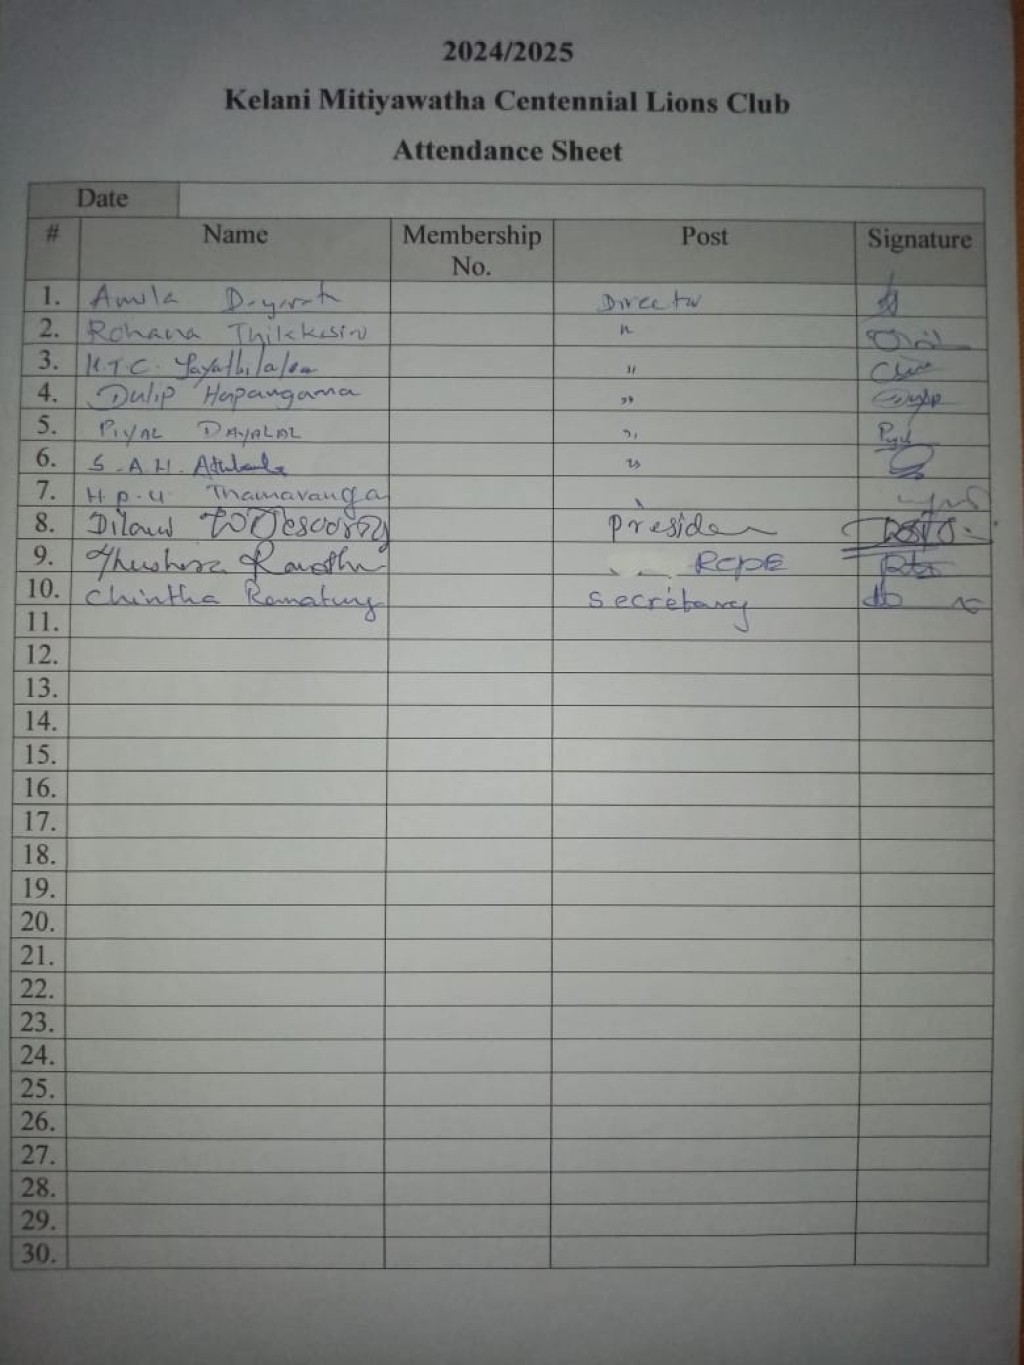 2024/2025
Kelani Mitiyawatha Centennial Lions Club
Attendance Sheet
Date
# Name Membership No. Post Signature
1. Amila Director
2. Rohana Thilakasiri "
3. H.T.C. Jayathilaka "
4. Dulip Hapangama "
5. PIYAL DAYALAL "
6. S.A.H. "
7. H.P.U. Thamaranga
8. Presiden
9. Thushara RCPE
10. Chintha Ramatung Secretary
11.
12.
13.
14.
15.
16.
17.
18.
19.
20.
21.
22.
23.
24.
25.
26.
27.
28.
29.
30.